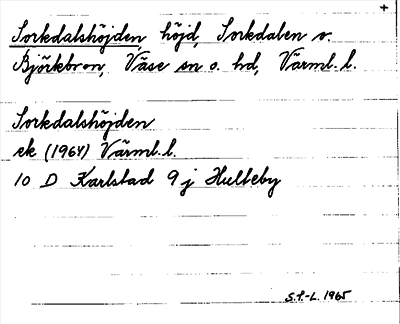 +
Sorkdalshöjden, höjd, Sorkdalen o.
Björkbron, Väse sn o. hd, Värml. l.
Sorkdalshöjden
ek (1964) Värml. l.
10 D Karlstad 9 j Hulteby
S.F.-L. 1965